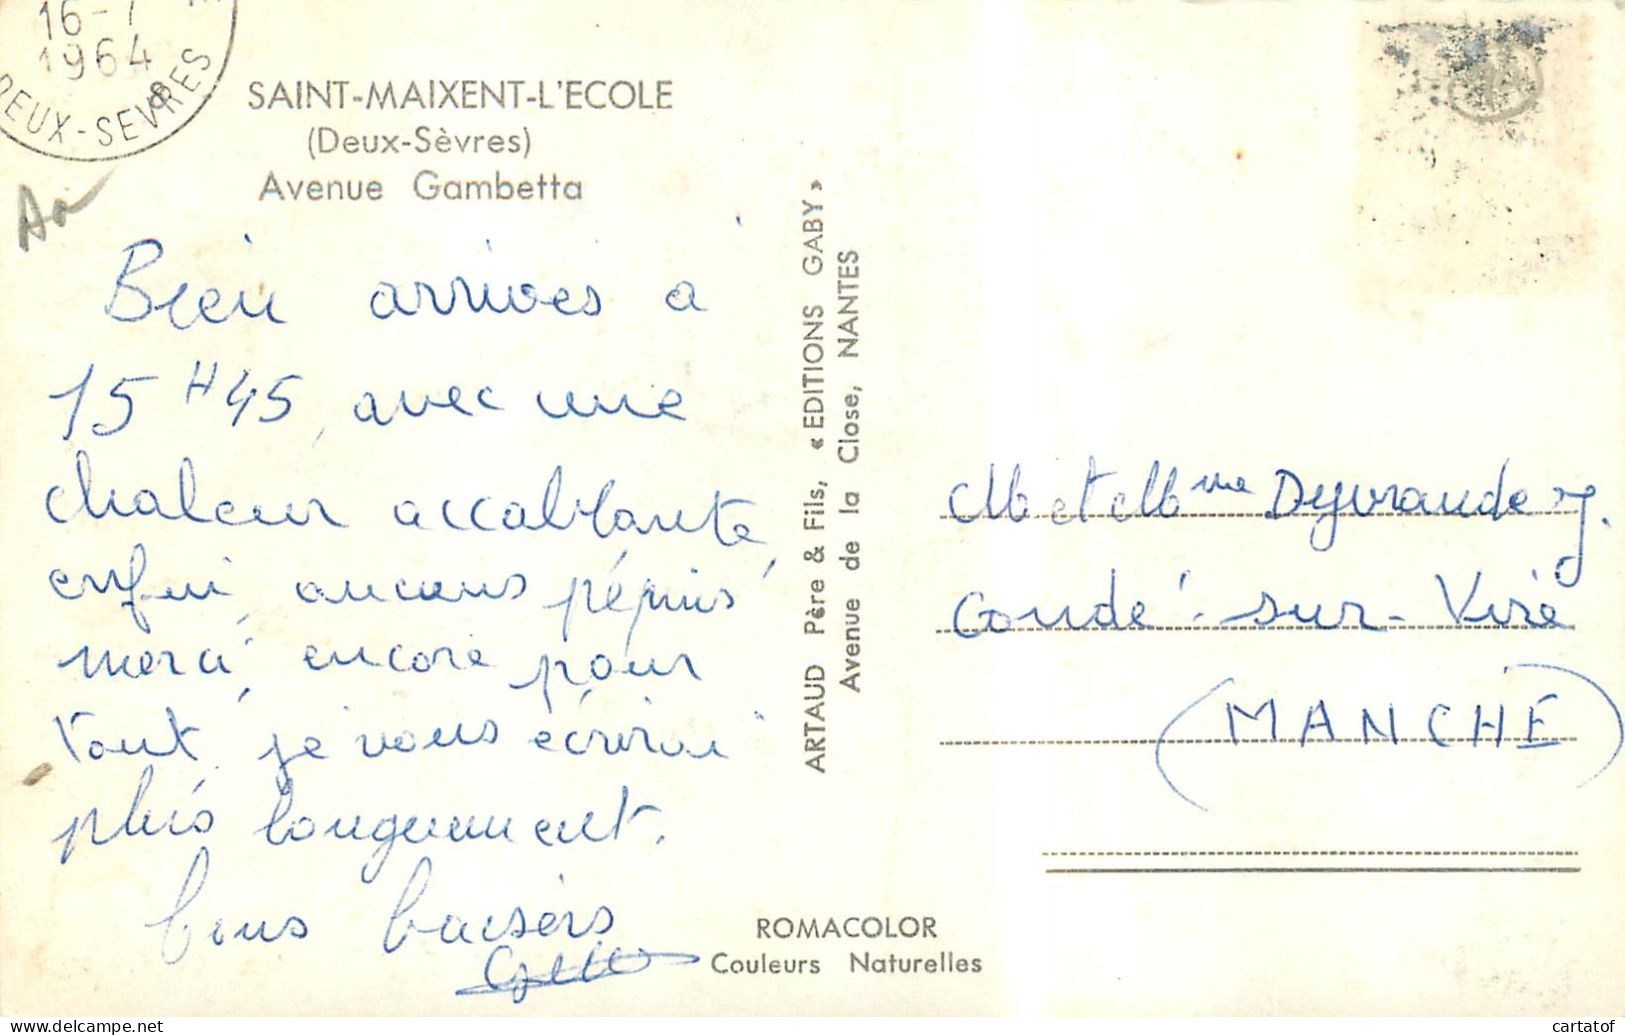 16-7
1964
DEUX-SEVRES
SAINT-MAIXENT-L'ECOLE
(Deux-Sèvres)
Avenue Gambetta
Bien arrivés à
15 H 45, avec une
chaleur accablante,
enfin, aucuns pépins
merci, encore pour
tout, je vous écrirai
plus longuement.
bons baisers
ARTAUD Père & Fils, « EDITIONS GABY »
Avenue de la Close, NANTES
M et Mme Dyvrande J.
Condé-sur-Vire
(MANCHE)
ROMACOLOR
Couleurs Naturelles
www.delcampe.net
cartatof